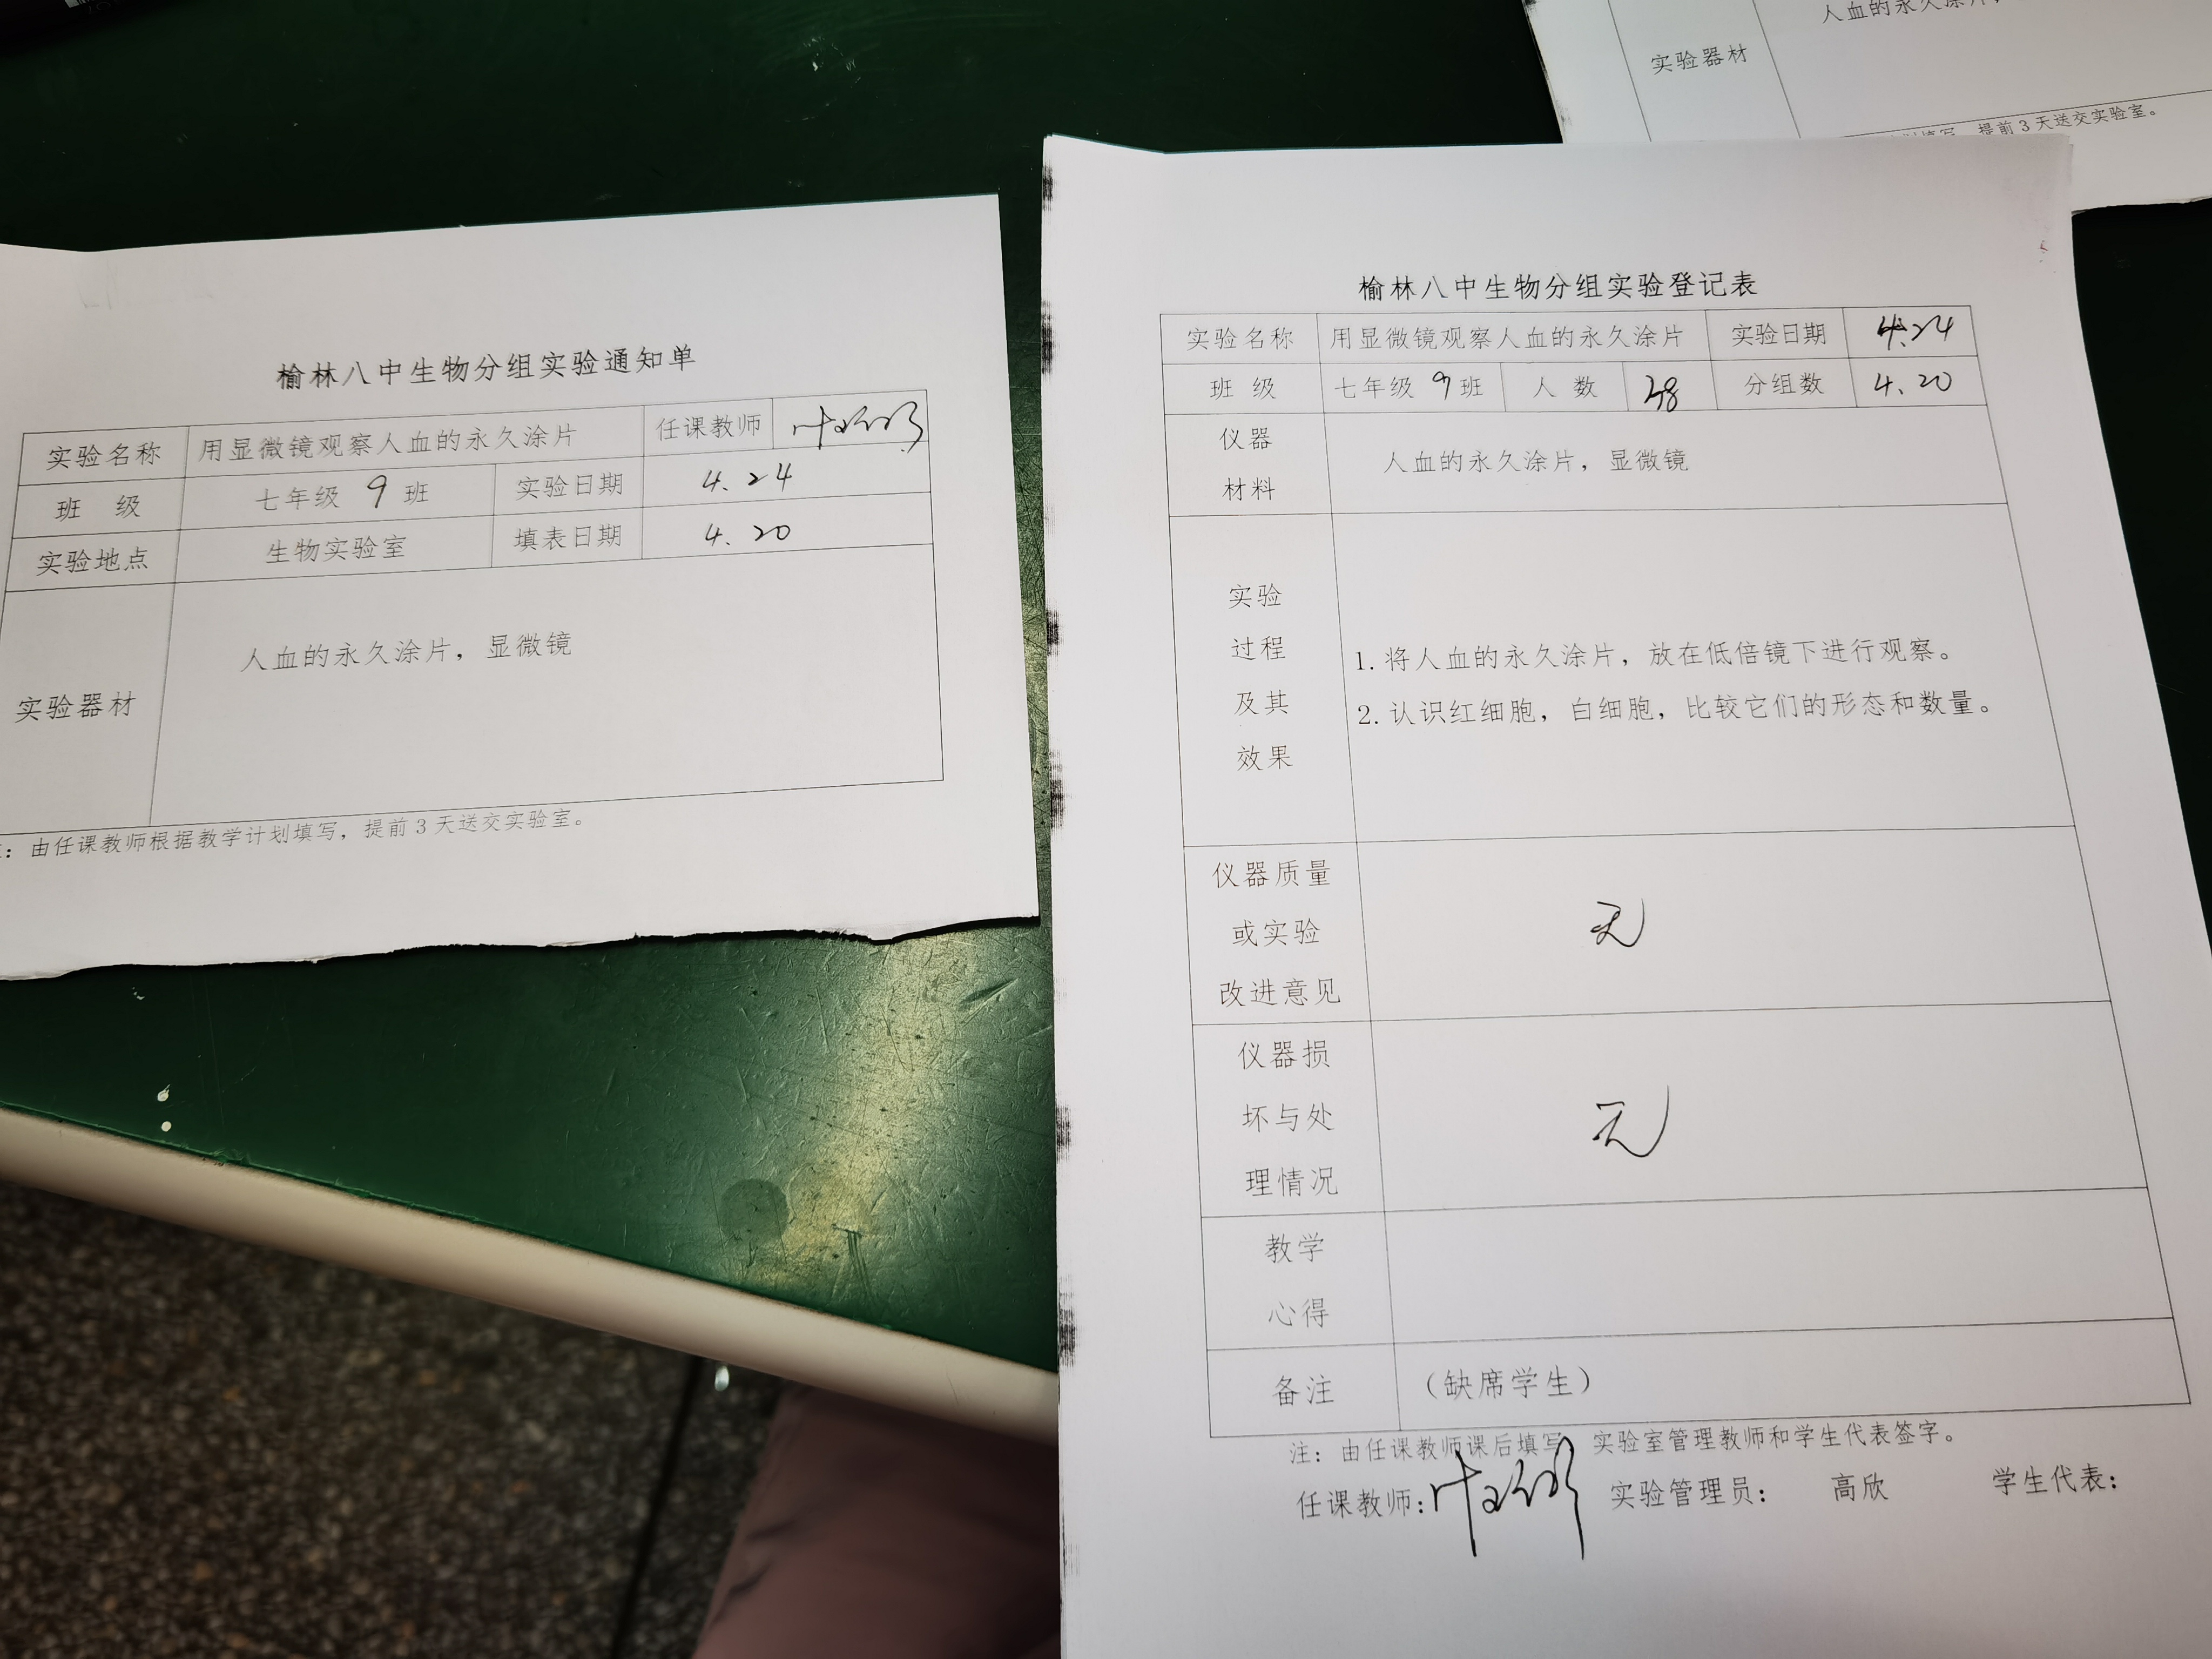 榆林八中生物分组实验通知单
实验名称 用显微镜观察人血的永久涂片 任课教师
班 级 七年级 9 班 实验日期 4.24
实验地点 生物实验室 填表日期 4.20
实验器材 人血的永久涂片，显微镜
：由任课教师根据教学计划填写，提前3天送交实验室。
人血的永久涂片，
实验器材
填写，提前3天送交实验室。
榆林八中生物分组实验登记表
实验名称 用显微镜观察人血的永久涂片 实验日期 4.24
班 级 七年级 9 班 人 数 分组数 4.20
仪器
材料
人血的永久涂片，显微镜
实验
过程
及其
效果
1.将人血的永久涂片，放在低倍镜下进行观察。
2.认识红细胞，白细胞，比较它们的形态和数量。
仪器质量
或实验
改进意见
无
仪器损
坏与处
理情况
无
教学
心得
备注 （缺席学生）
注：由任课教师课后填写，实验室管理教师和学生代表签字。
任课教师： 实验管理员： 高欣 学生代表：